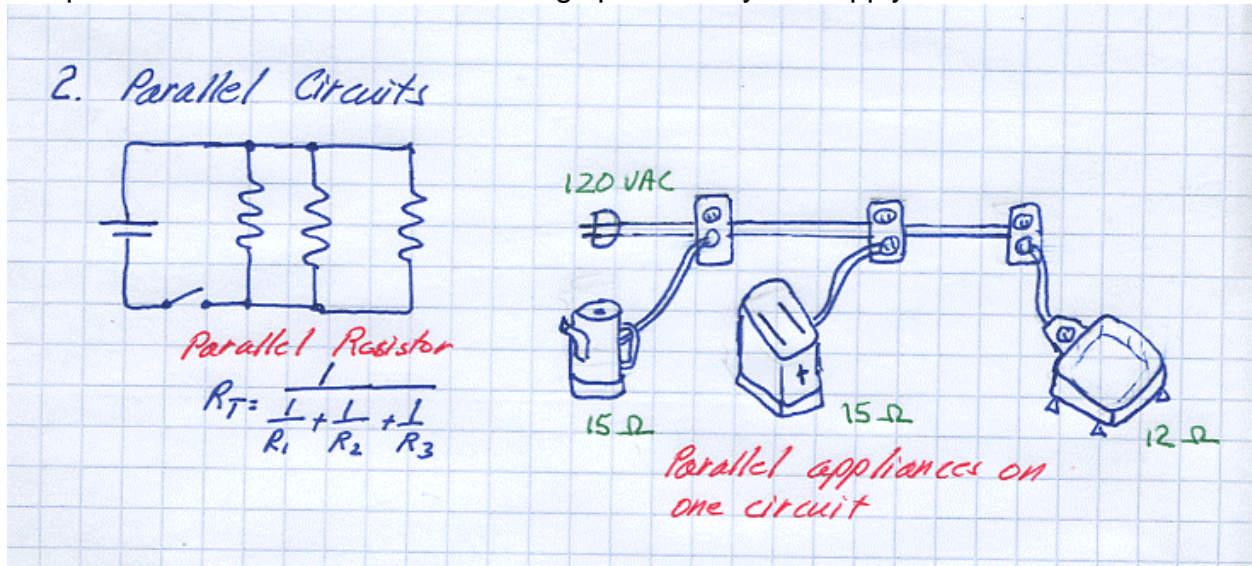 2. Parallel Circuits
120 VAC
Parallel Resistor
RT = 1
1/R1 + 1/R2 + 1/R3
15 Ω
15 Ω
12 Ω
Parallel appliances on
one circuit